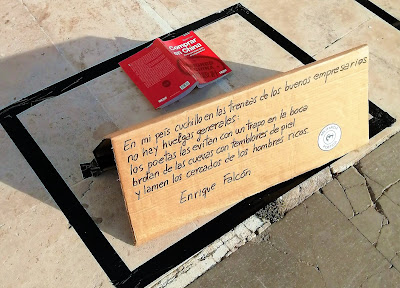 Comprar
en China
En mi país cuchillo en las trenzas de los buenos empresarios
no hay huelgas generales:
los poetas las evitan con un trapo en la boca
brotan de las cuevas con temblores de piel
y lamen los cercados de los hombres ricos.
Enrique Falcón